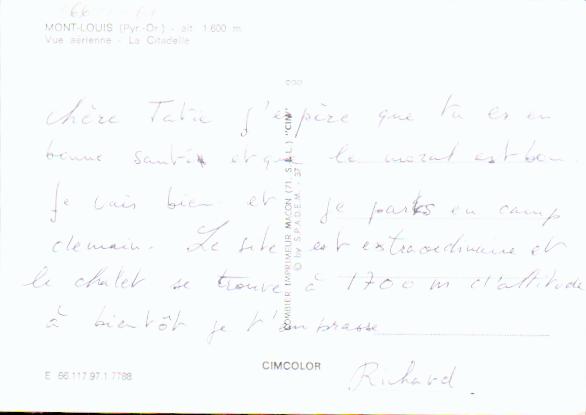 MONT-LOUIS (Pyr.-Or.) - alt. 1.600 m
Vue aérienne - La Citadelle
chère Tatie j'espère que tu es en
bonne santé et que le moral est bon.
Je vais bien et je pars en camp
demain. Le site est extraordinaire et
le chalet se trouve à 1700 m d'altitude
à bientôt je t'embrasse
Richard
COMBIER IMPRIMEUR MACON (71. S.&L.) "CIM"
© by S.P.A.D.E.M. - 37
CIMCOLOR
E 66.117.97.1.7788